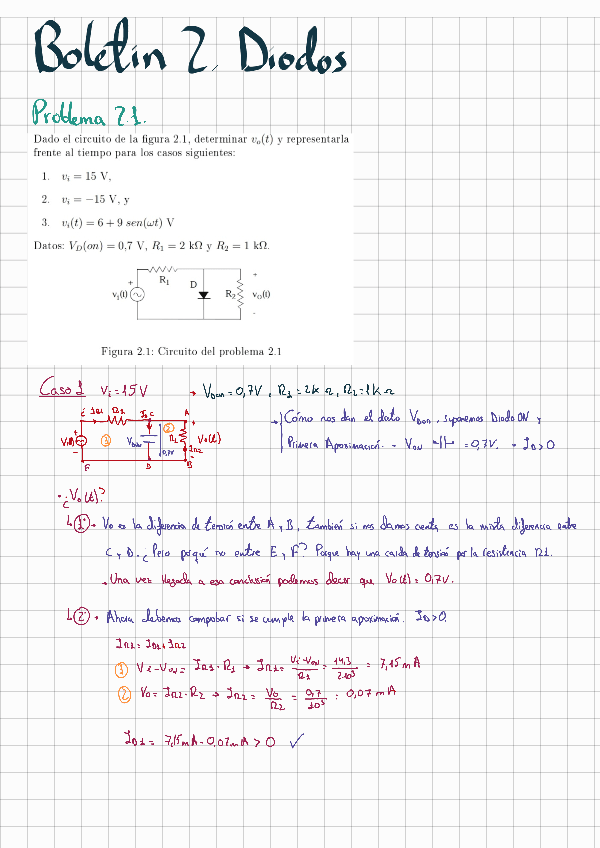 Boletín 2. Diodos
Problema 2.1.
Dado el circuito de la figura 2.1, determinar v_o(t) y representarla
frente al tiempo para los casos siguientes:
1. v_i = 15 V,
2. v_i = −15 V, y
3. v_i(t) = 6 + 9 sen(ωt) V
Datos: V_D(on) = 0,7 V, R_1 = 2 kΩ y R_2 = 1 kΩ.
R_1
D
R_2
v_i(t)
v_O(t)
+
+
-
Figura 2.1: Circuito del problema 2.1
Caso 1 Vi = 15 V → V_Don = 0,7V, R1 = 2k Ω, R2 = 1k Ω
E I_R1 R1 I_D C A
Vi(t) 1 V_Don 2 R2 Vo(t)
0,7V I_R2
F D B
→ Cómo nos dan el dato V_Don, suponemos Diodo ON y
Primera Aproximación. → V_ON = 0,7V. → I_D > 0
• ¿Vo(t)?
↳ 1º • Vo es la diferencia de tensión entre A y B, también si nos damos cuenta es la misma diferencia entre
C y D. ¿Pero porqué no entre E y F? Porque hay una caida de tensión por la resistencia R1.
→ Una vez llegada a esa conclusión podemos decir que Vo(t) = 0,7V.
↳ 2º • Ahora debemos comprobar si se cumple la primera aproximación. I_D > 0
I_R1 = I_D1 + I_R2
1 Vi - V_ON = I_R1 · R1 → I_R1 = Vi - V_ON / R1 = 14,3 / 2·10³ = 7,15 mA
2 Vo = I_R2 · R2 → I_R2 = Vo / R2 = 0,7 / 10³ = 0,07 mA
I_D1 = 7,15 mA - 0,07 mA > 0 ✓